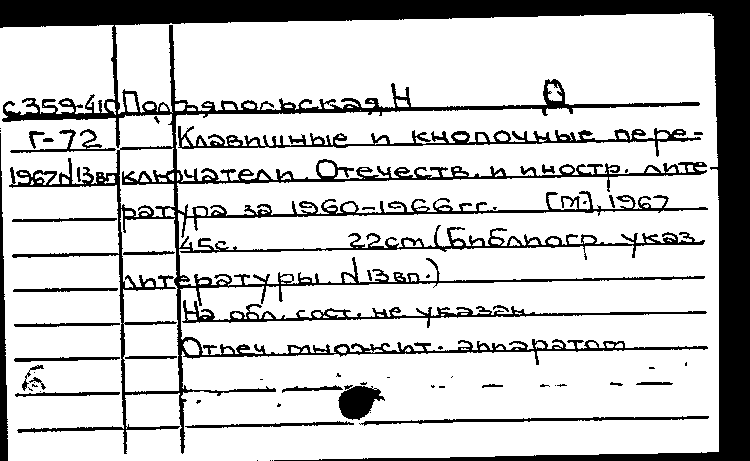 с359-410 Подъяпольская, Н Д
Г-72 Клавишные и кнопочные пере-
1967 N13вп ключатели. Отечеств. и иностр. лите-
ратура за 1960-1966 гг. [М.], 1967
45с. 22см (Библиогр. указ.
литературы. N13вп.)
На обл. сост. не указан.
Отпеч. множит. аппаратом
б